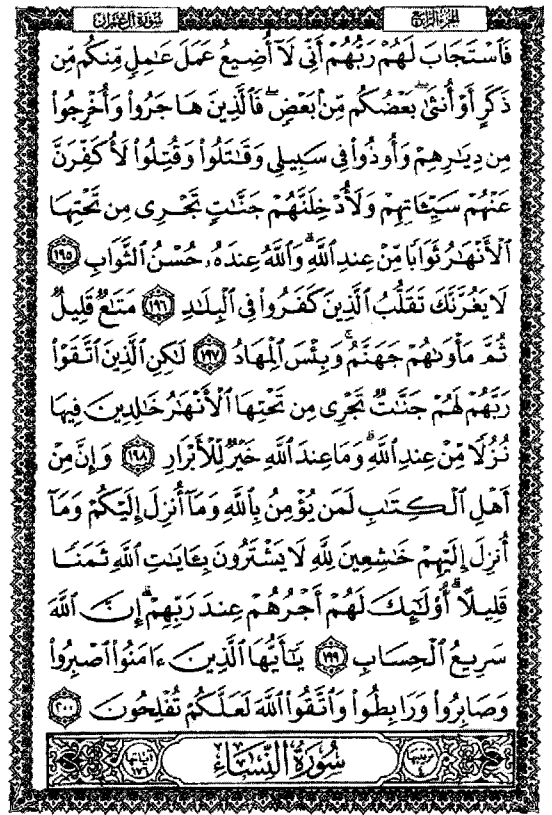 سُورَةُ آلِ عِمْرَانَ
الجُزْءُ الرَّابِعُ
فَٱسْتَجَابَ لَهُمْ رَبُّهُمْ أَنِّى لَآ أُضِيعُ عَمَلَ عَٰمِلٍ مِّنكُم مِّن
ذَكَرٍ أَوْ أُنثَىٰۖ بَعْضُكُم مِّنۢ بَعْضٍۖ فَٱلَّذِينَ هَاجَرُوا۟ وَأُخْرِجُوا۟
مِن دِيَٰرِهِمْ وَأُوذُوا۟ فِى سَبِيلِى وَقَٰتَلُوا۟ وَقُتِلُوا۟ لَأُكَفِّرَنَّ
عَنْهُمْ سَيِّـَٔاتِهِمْ وَلَأُدْخِلَنَّهُمْ جَنَّٰتٍ تَجْرِى مِن تَحْتِهَا
ٱلْأَنْهَٰرُ ثَوَابًا مِّنْ عِندِ ٱللَّهِۗ وَٱللَّهُ عِندَهُۥ حُسْنُ ٱلثَّوَابِ ١٩٥
لَا يَغُرَّنَّكَ تَقَلُّبُ ٱلَّذِينَ كَفَرُوا۟ فِى ٱلْبِلَٰدِ ١٩٦ مَتَٰعٌ قَلِيلٌ
ثُمَّ مَأْوَىٰهُمْ جَهَنَّمُۚ وَبِئْسَ ٱلْمِهَادُ ١٩٧ لَٰكِنِ ٱلَّذِينَ ٱتَّقَوْا۟
رَبَّهُمْ لَهُمْ جَنَّٰتٌ تَجْرِى مِن تَحْتِهَا ٱلْأَنْهَٰرُ خَٰلِدِينَ فِيهَا
نُزُلًا مِّنْ عِندِ ٱللَّهِۗ وَمَا عِندَ ٱللَّهِ خَيْرٌ لِّلْأَبْرَارِ ١٩٨ وَإِنَّ مِنْ
أَهْلِ ٱلْكِتَٰبِ لَمَن يُؤْمِنُ بِٱللَّهِ وَمَآ أُنزِلَ إِلَيْكُمْ وَمَآ
أُنزِلَ إِلَيْهِمْ خَٰشِعِينَ لِلَّهِ لَا يَشْتَرُونَ بِـَٔايَٰتِ ٱللَّهِ ثَمَنًا
قَلِيلًاۗ أُو۟لَٰٓئِكَ لَهُمْ أَجْرُهُمْ عِندَ رَبِّهِمْۗ إِنَّ ٱللَّهَ
سَرِيعُ ٱلْحِسَابِ ١٩٩ يَٰٓأَيُّهَا ٱلَّذِينَ ءَامَنُوا۟ ٱصْبِرُوا۟
وَصَابِرُوا۟ وَرَابِطُوا۟ وَٱتَّقُوا۟ ٱللَّهَ لَعَلَّكُمْ تُفْلِحُونَ ٢٠٠
ترتيبها ٤
سُورَةُ النِّسَاءِ
آياتها ١٧٦